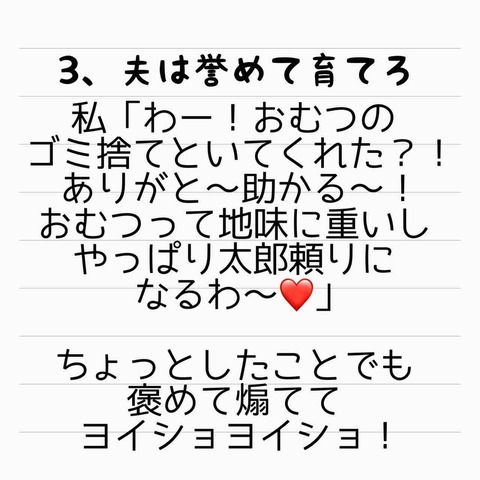 3、夫は誉めて育てろ
私「わー！おむつの
ゴミ捨てといてくれた？！
ありがと〜助かる〜！
おむつって地味に重いし
やっぱり太郎頼りに
なるわ〜❤️」
ちょっとしたことでも
褒めて煽てて
ヨイショヨイショ！